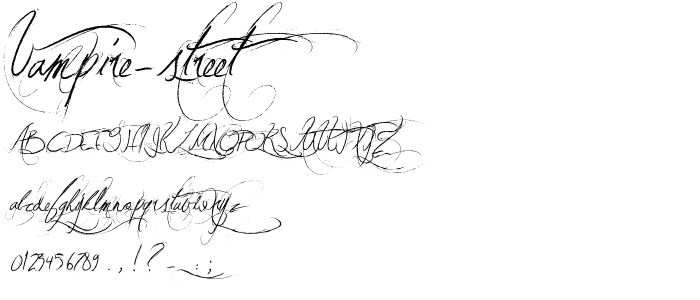 Vampire-street
ABCDEFGHIJKLMNOPQRSTUVWXYZ
abcdefghijklmnopqrstuvwxyz
0123456789 . , ! ? - _ : ;